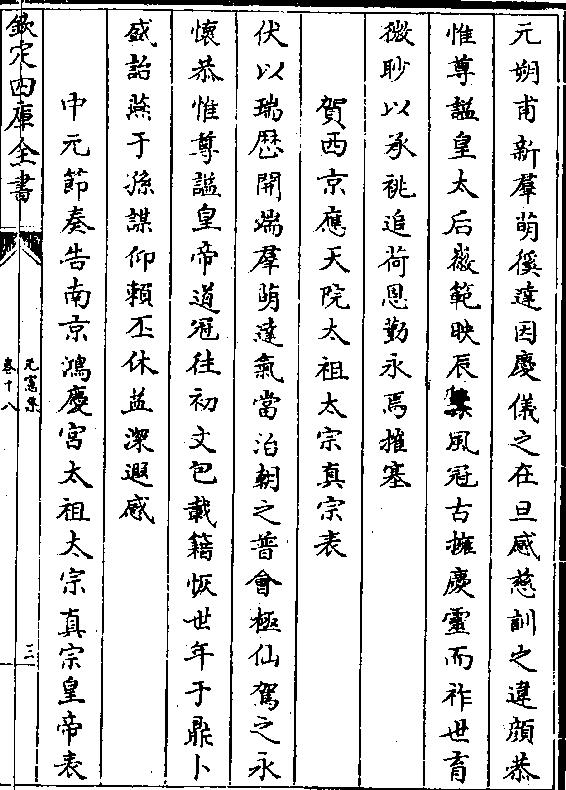 元朔甫新羣萌徯達因慶儀之在旦感慈訓之違顔恭
惟尊謚皇太后徽範映辰風冠古擁慶靈而祚世育
微眇以承祧追荷恩勤永焉摧塞
賀西京應天院太祖太宗真宗表
伏以瑞厯開端羣萌達氣當治朝之普會極仙駕之永
懷恭惟尊謚皇帝道冠徃初文包載籍恢世年于鼎卜
盛詒燕于孫謀仰頼丕休益深遐感
中元節奏告南京鴻慶宫太祖太宗真宗皇帝表
欽定四庫全書
元憲集
卷十八
三